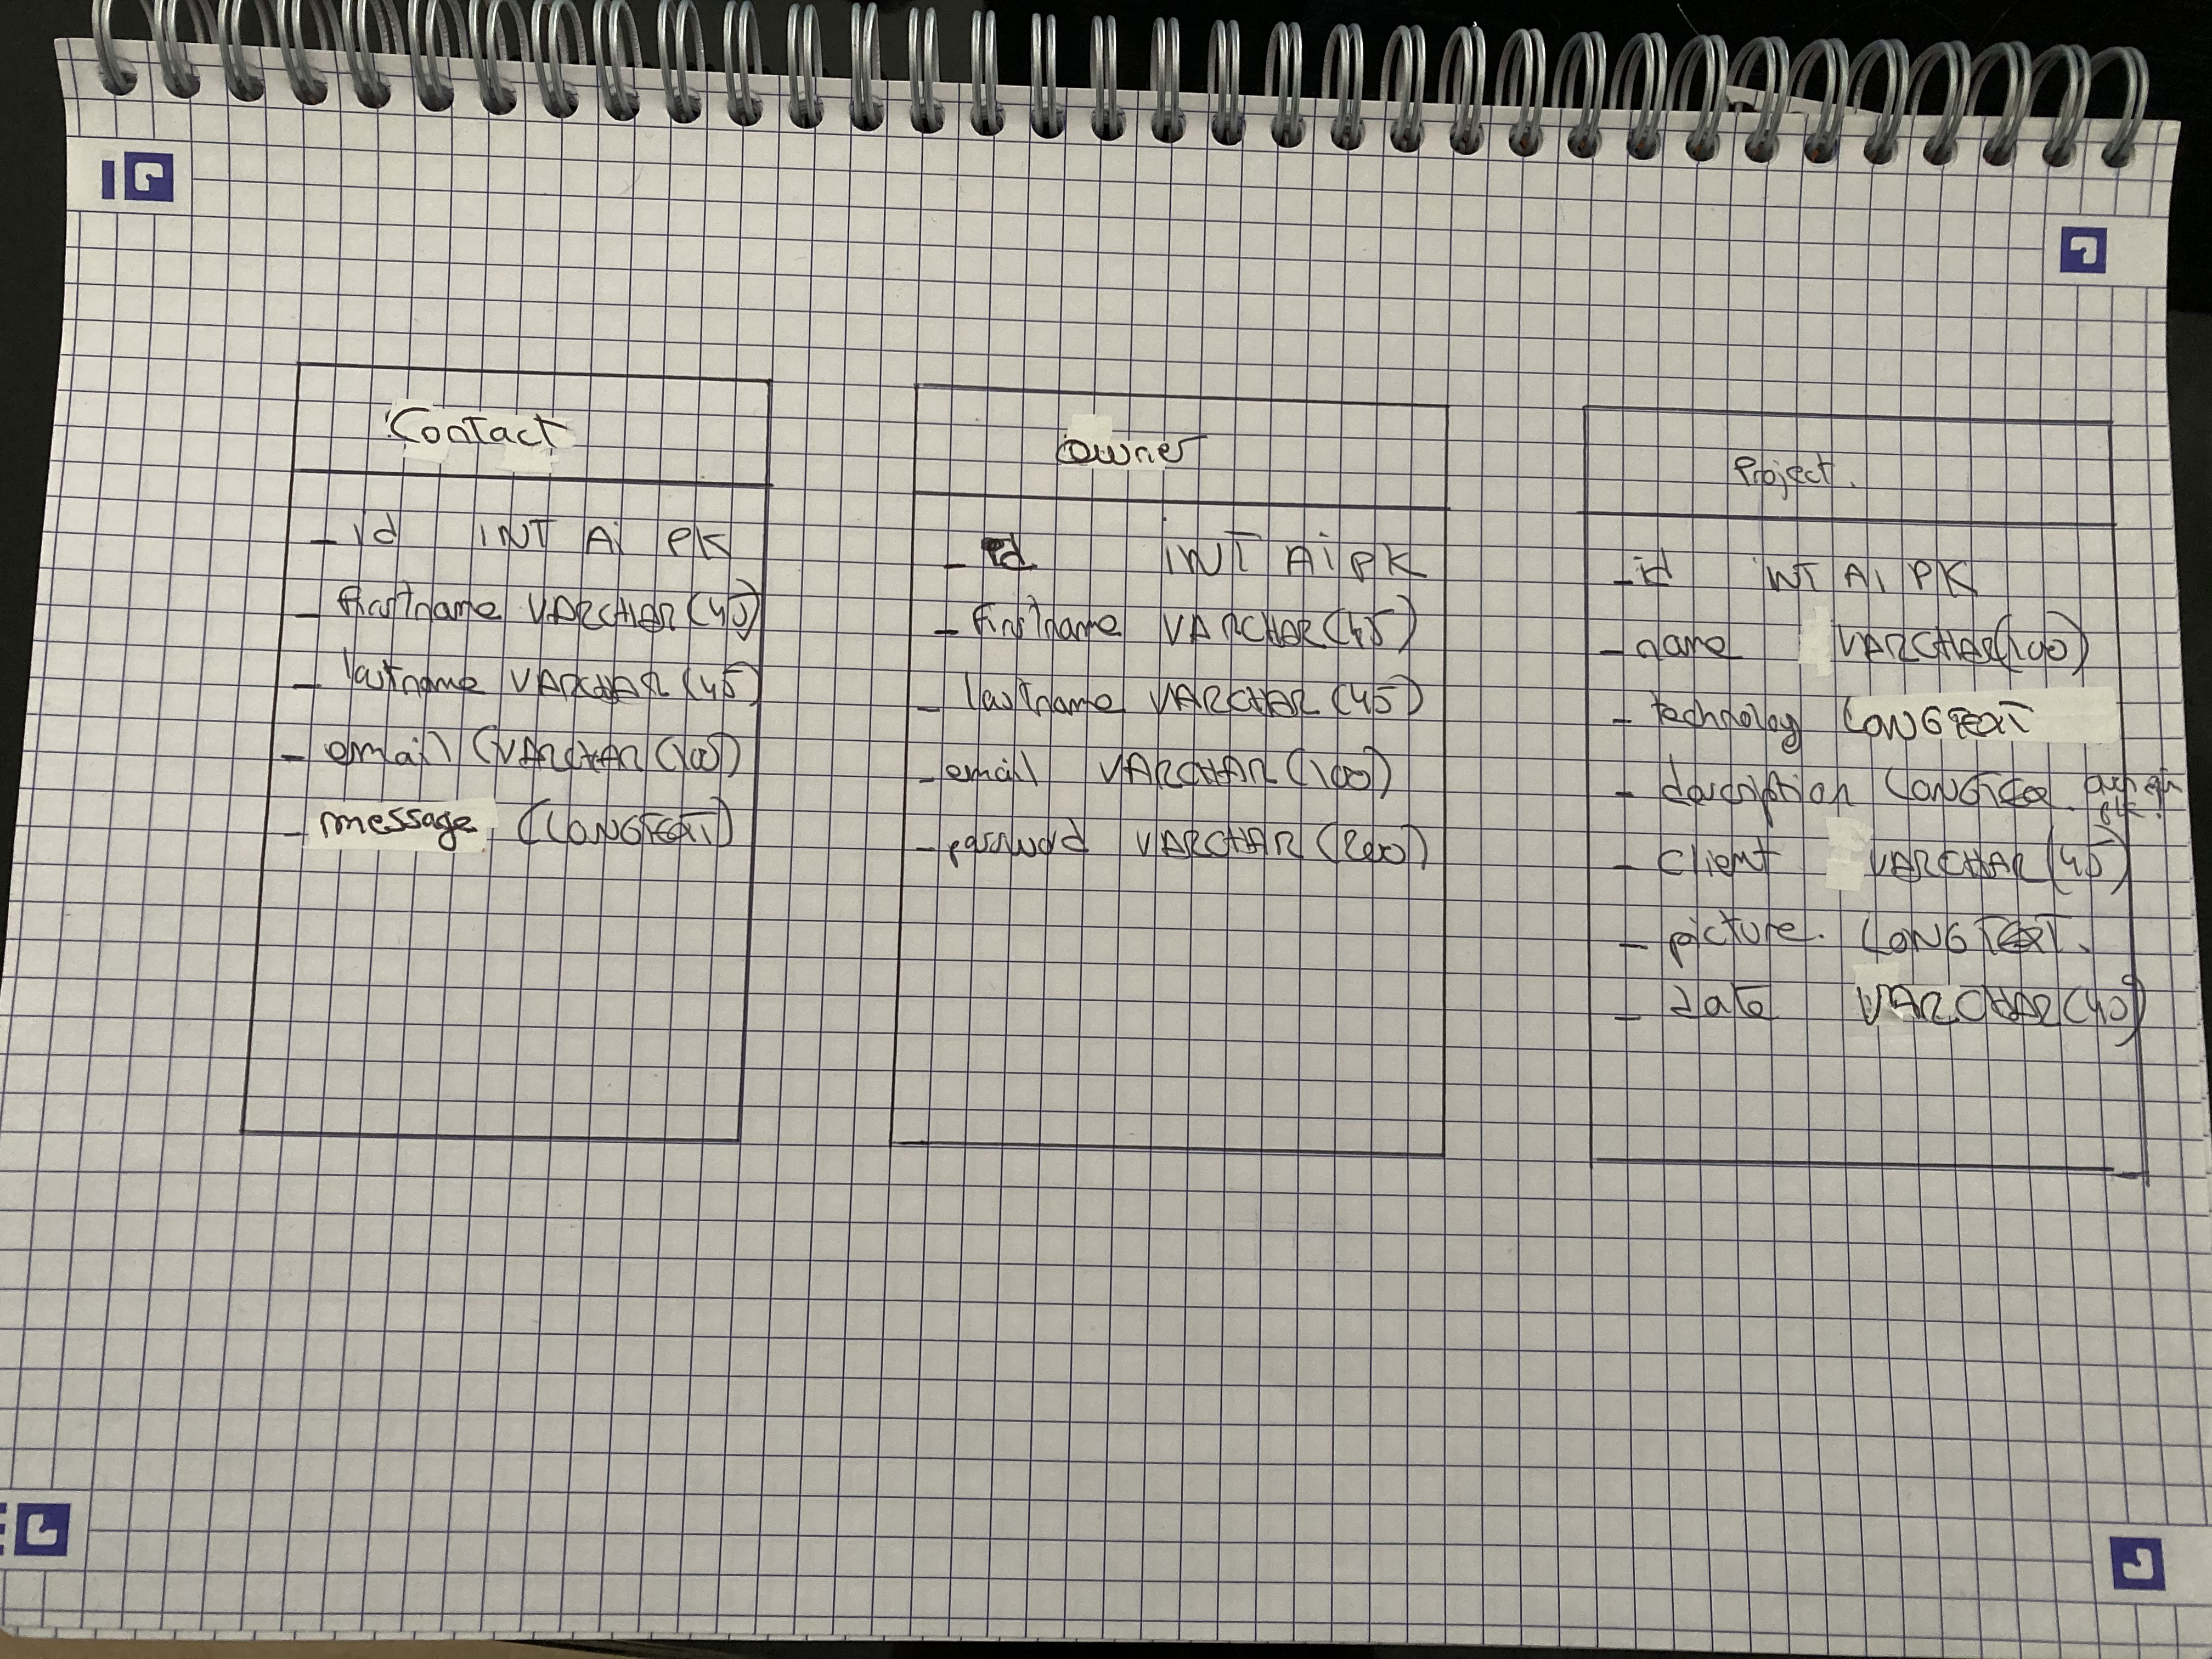 Contact
- id INT Ai PK
- firstname VARCHAR (45)
- lastname VARCHAR (45)
- email (VARCHAR (100)
- message (LONGTEXT)
Owner
- id INT Ai PK
- firstname VARCHAR (45)
- lastname VARCHAR (45)
- email VARCHAR (100)
- password VARCHAR (200)
Project.
- id INT AI PK
- name VARCHAR (100)
- technology LONGTEXT
- description LONGTEX.
- client VARCHAR (45)
- picture. LONGTEXT.
- date VARCHAR (45)